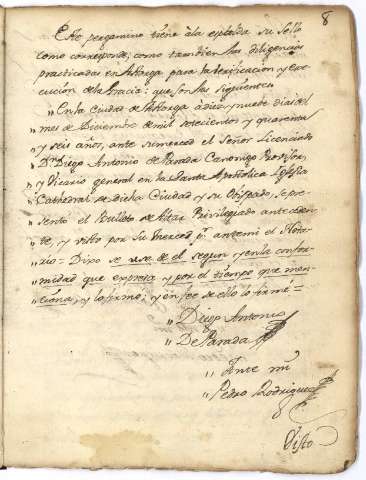 8
Este pergamino tiene à la espalda su Sello
como corresponde; como tambien las diligencias
practicadas en Astorga para la verificacion y exe
cucion de la Gracia: que son las siguientes
" En la Ciudad de Astorga à diez y nueve dias del
" mes de Diciembre de mil setecientos y quarenta
" y seis años, ante su merced el Señor Licenciado
" Dn. Diego Antonio de Parada Canonigo Provisor,
" y Vicario general en la Santa Apostolica Iglesia
" Cathedral de dicha Ciudad y su Obispado, se pre-
" sentó el Buleto de Altar Privilegiado anteceden
" te, y visto por su merced pr. ante mi el Nota
" rio = Dixo se use de el segun y en la confor-
" midad que expresa y por el tiempo que men-
" ciona; y lo firmó, y en fee de ello lo firmé =
" Diego Antonio
" De Parada
" Ante mi
" Pedro Rodriguez
Visto